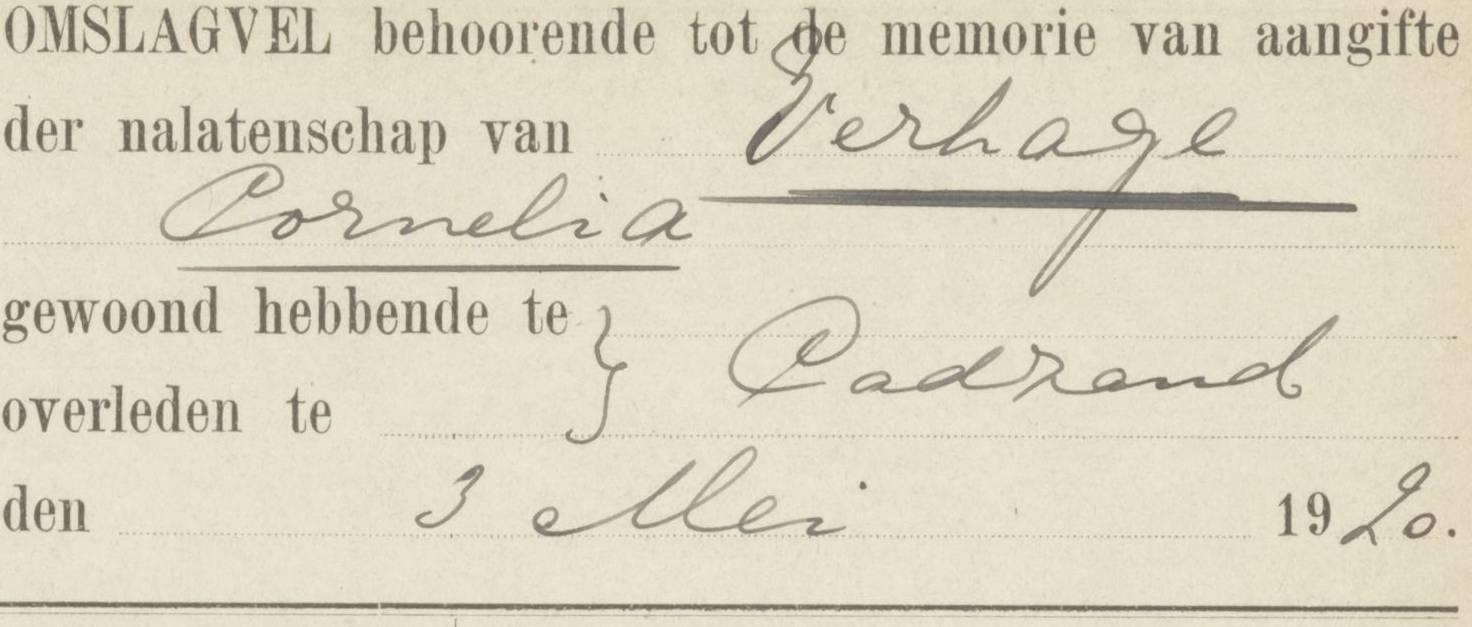 OMSLAGVEL behoorende tot de memorie van aangifte
der nalatenschap van Verhage
Cornelia
gewoond hebbende te } Cadzand
overleden te
den 3 Mei 1920.